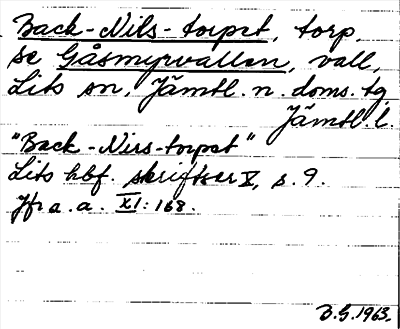 Back-Nils-torpet, torp,
se Gåsmyrvallen, vall,
Lits sn, Jämtl. n. doms. tg,
Jämtl. l.
"Back-Nirs-torpet"
Lits hbf. skriftser V, s. 9.
Jfr a. a. XI: 168.
B.G. 1963.